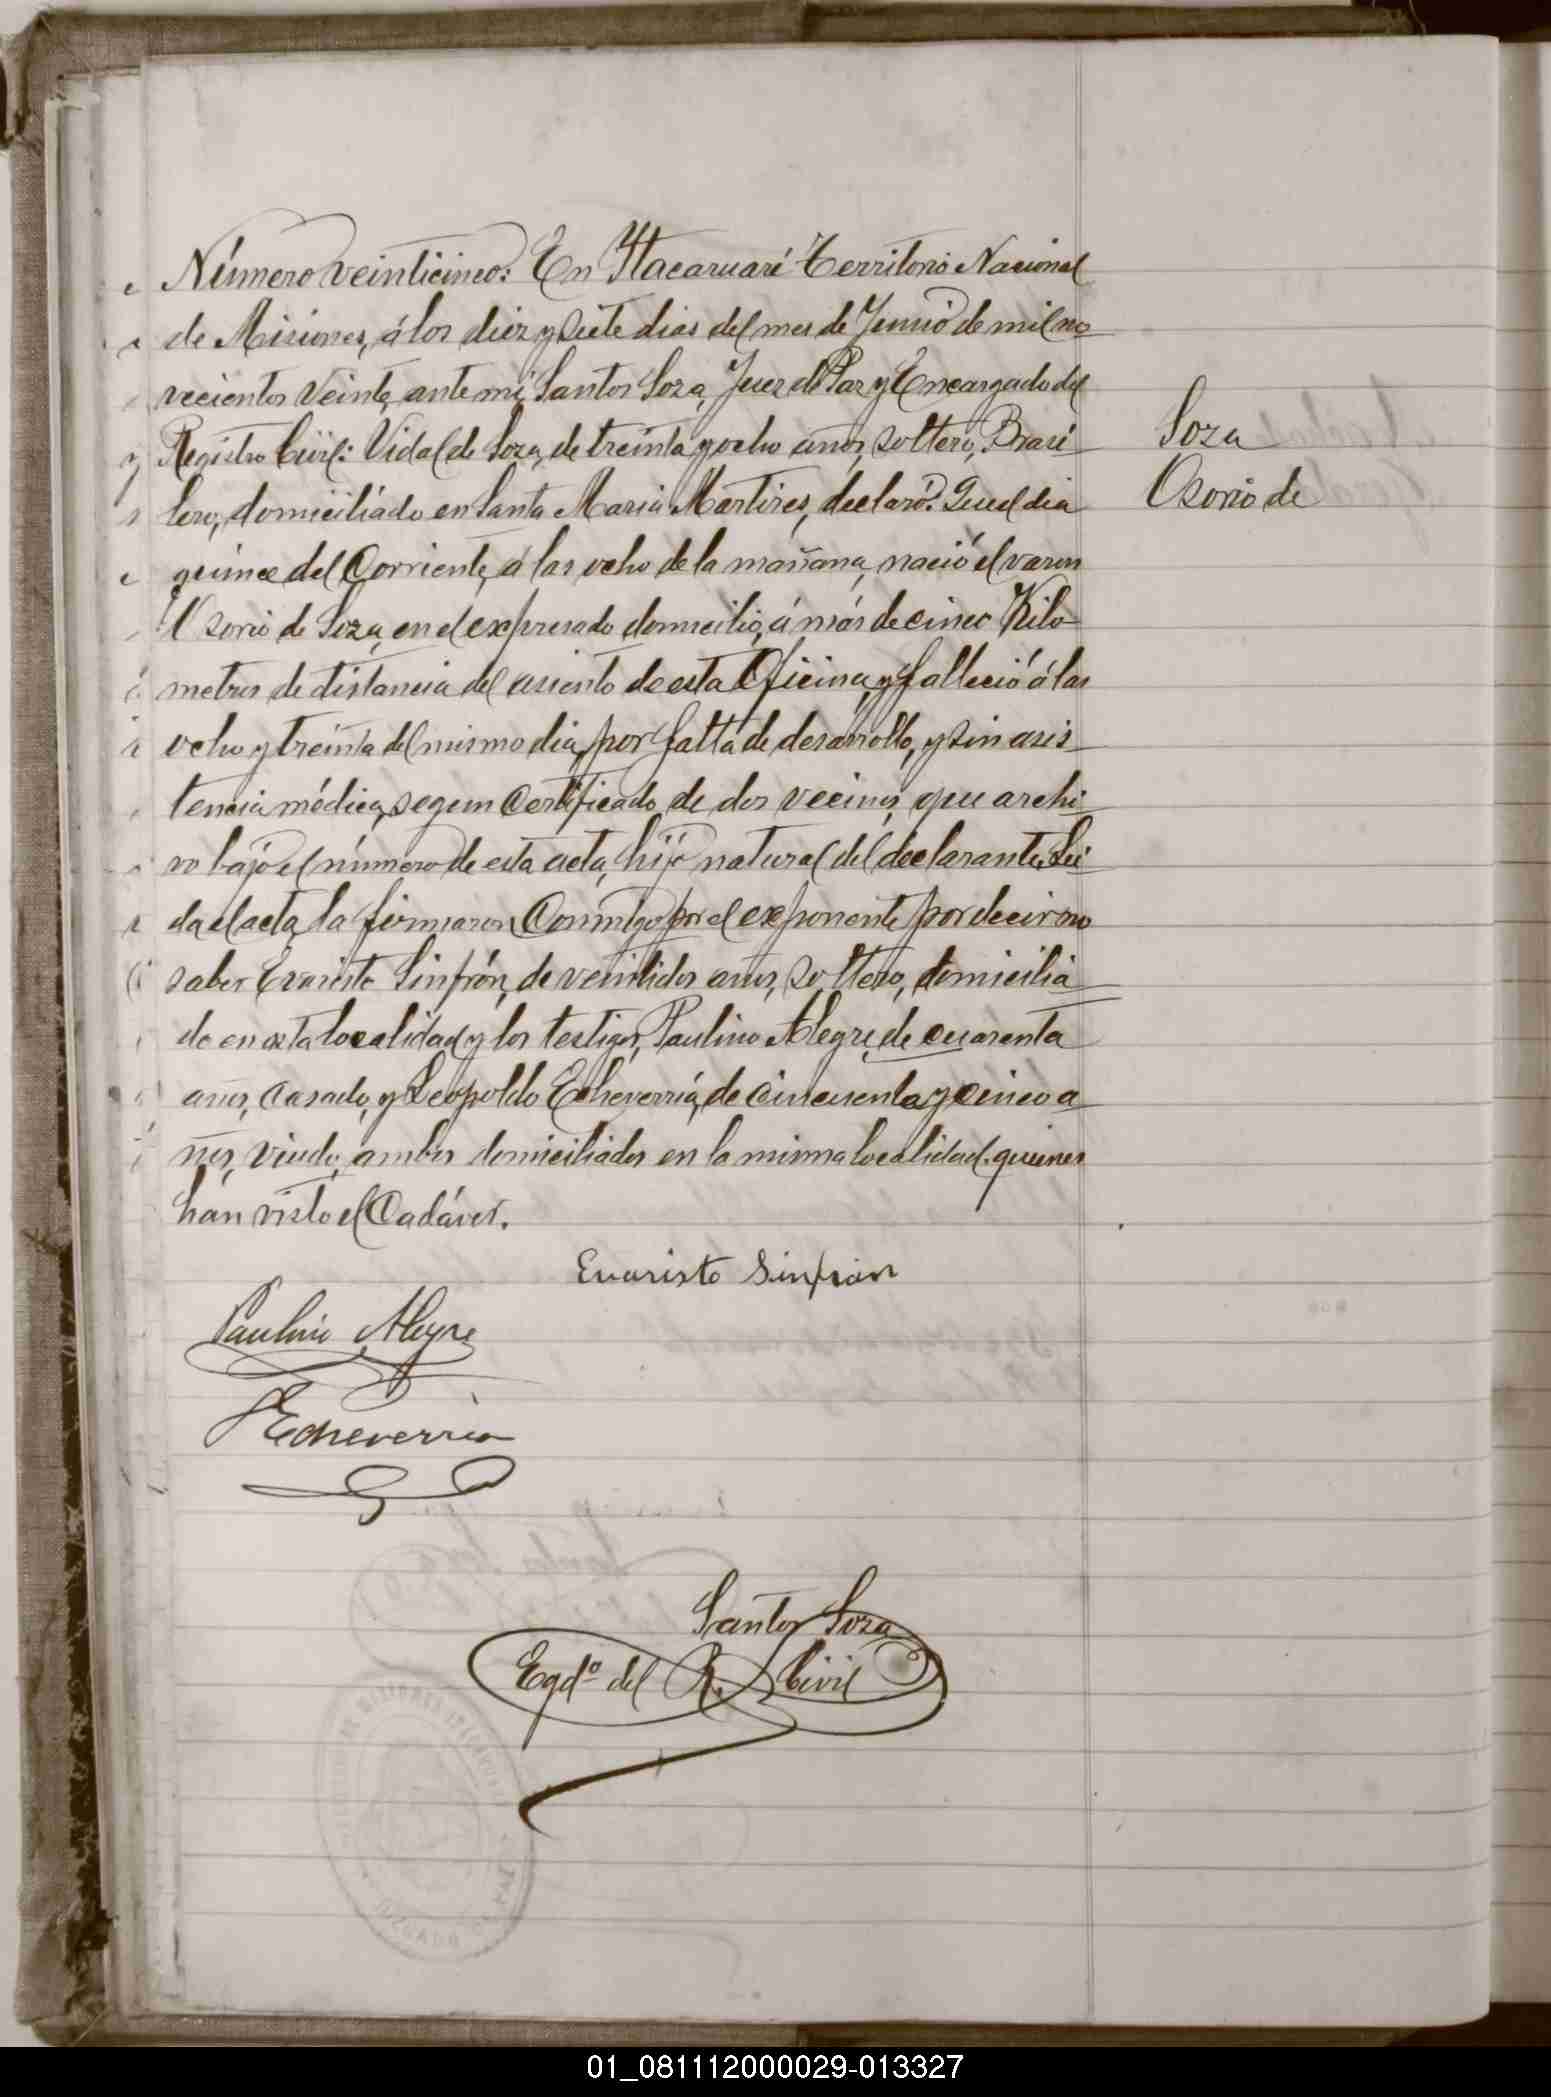 Número veinticinco: En Ytacaruaré Territorio Nacional
de Misiones, á los diez y siete dias del mes de Junio de mil no
vecientos veinte, ante mi, Santos Soza, Juez de Paz y Encargado del
Registro Civil: Vidal de Soza, de treinta y ocho años, soltero, Brasi
Soza
lero, domiciliado en Santa Maria Martires, declaró: Que el dia
Osorio de
quince del Corriente, á las ocho de la mañana, nació el varon
Osorio de Soza, en el expresado domicilio, á más de cinco Kilo
metros de distancia del asiento de esta Oficina, y falleció á las
ocho y treinta del mismo dia, por falta de desarrollo, y sin asis
tencia médica, segun Certificado de dos vecinos, que archi
vo bajo el número de esta acta, hijo natural del declarante. Lei
da el acta, la firmaron Conmigo por el exponente por decir no
saber Evaristo Sinfrón, de veintidos años, soltero, domicilia
do en esta localidad y los testigos, Paulino Alegre, de cuarenta
años, casado, y Leopoldo Echeverría, de cincuenta y cinco a
ños, viudo, ambos domiciliados en la misma localidad. quienes
han visto el Cadáver.
Evaristo Sinfrón
Paulino Alegre
Echeverria
Santos Soza
Egdº del R. Civil
JUZGADO
01_081112000029-013327